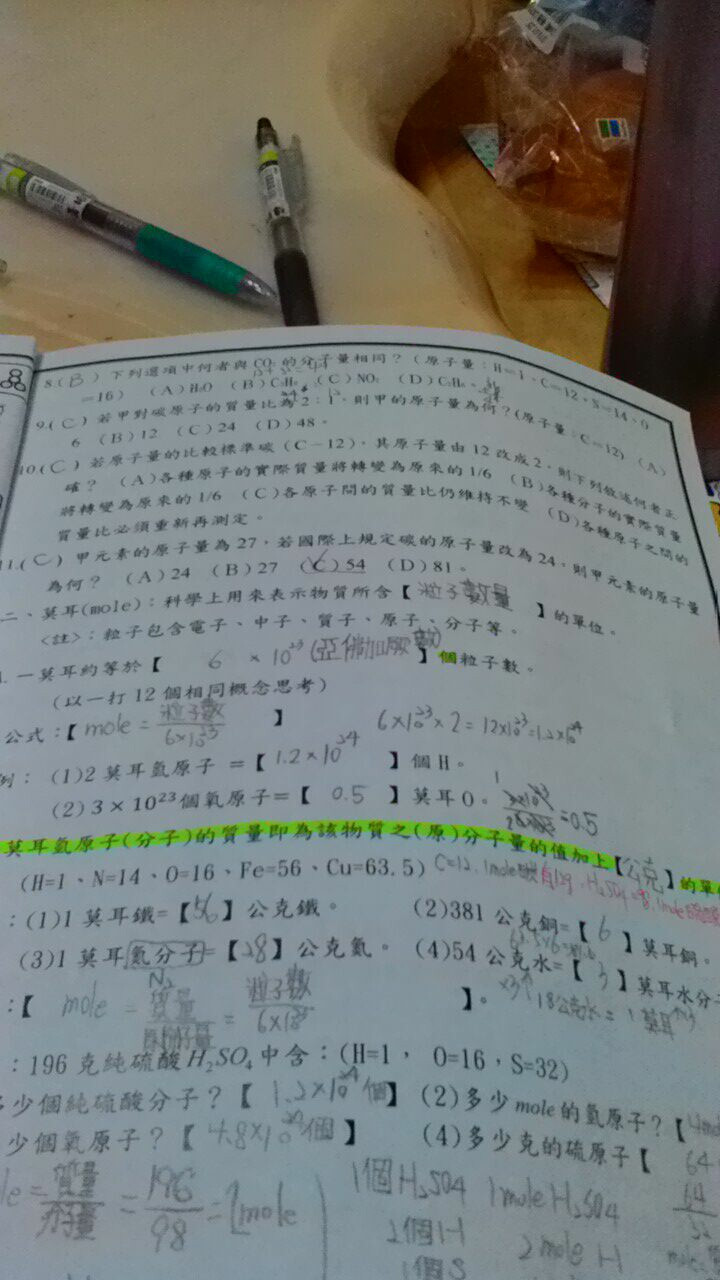 8.(B) 下列選項中何者與CO₂的分子量相同？(原子量：H=1、C=12、S=14、O
=16) (A)H₂O (B)C₃H₈ (C)NO₂ (D)C₂H₆、
9.(C) 若甲對碳原子的質量比為2：1，則甲的原子量為何？(原子量：C=12) (A)
6 (B)12 (C)24 (D)48。
10.(C) 若原子量的比較標準碳(C-12)，其原子量由12改成2，則下列敘述何者正
確？ (A)各種原子的實際質量將轉變為原來的1/6 (B)各種分子的實際質量
將轉變為原來的1/6 (C)各原子間的質量比仍維持不變 (D)各種原子之間的
質量比必須重新再測定。
11.(C) 甲元素的原子量為27，若國際上規定碳的原子量改為24，則甲元素的原子量
為何？ (A)24 (B)27 (C)54 (D)81。
二、莫耳(mole)：科學上用來表示物質所含【粒子數量】的單位。
<註>：粒子包含電子、中子、質子、原子、分子等。
1.一莫耳約等於【6×10²³(亞佛加厥數)】個粒子數。
(以一打12個相同概念思考)
公式：【mole=粒子數/6×10²³】 6×10²³×2=12×10²³=1.2×10²⁴
例：(1)2莫耳氫原子=【1.2×10²⁴】個H。
(2)3×10²³個氧原子=【0.5】莫耳O。 =0.5
莫耳氫原子(分子)的質量即為該物質之(原)分子量的值加上【公克】的單
(H=1、N=14、O=16、Fe=56、Cu=63.5) C=12,1mole
：(1)1莫耳鐵=【56】公克鐵。 (2)381公克銅=【6】莫耳銅。
(3)1莫耳氮分子=【28】公克氮。 (4)54公克水=【3】莫耳水分子
N₂
：【mole=質量/原(分)子量=粒子數/6×10²³】。 ×3 18公克水=1莫耳
：196克純硫酸H₂SO₄中含：(H=1， O=16，S=32)
多少個純硫酸分子？【1.2×10²⁴個】 (2)多少mole的氫原子？【4mo
少個氧原子？【4.8×10²⁴個】 (4)多少克的硫原子【64
le=質量/分子量=196/98=2mole 1個H₂SO4 1mole H₂SO4 64
2個H 2mole H
1個S